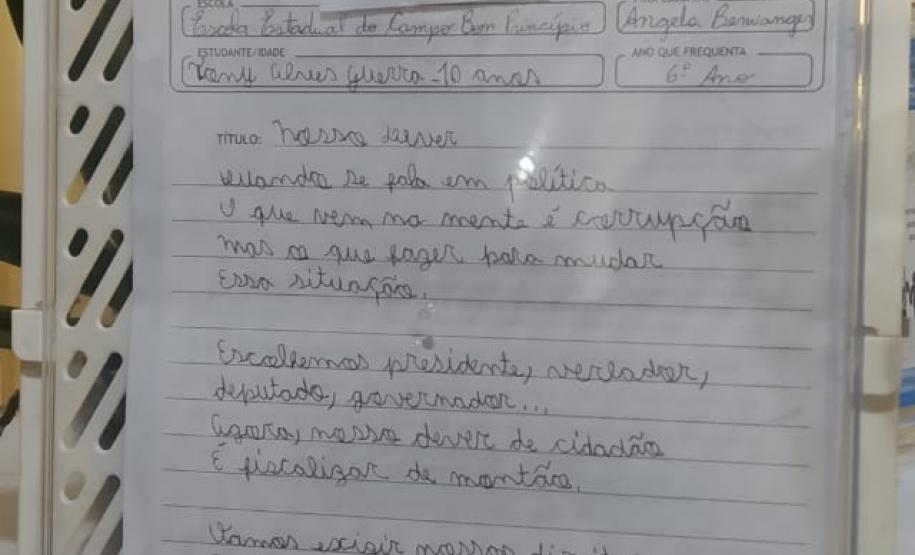 ESCOLA
Escola Estadual do Campo Bom Princípio
Angela Benwanger
ESTUDANTE/IDADE
ANO QUE FREQUENTA
Kemy Alves Guerra - 10 anos
6º Ano
TÍTULO: Nosso dever
Quando se fala em política
O que vem na mente é corrupção
Mas o que fazer para mudar
Essa situação.
Escolhemos presidente, vereador,
deputado, governador...
Agora, nosso dever de cidadão
É fiscalizar de montão.
Vamos exigir nossos